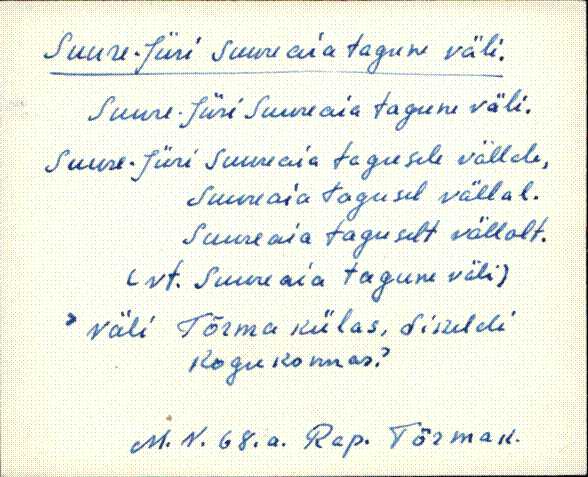 Suure-Jüri Suureaia tagune väli.
Suure-Jüri Suureaia tagune väli.
Suure-Jüri Suureaia tagusele vällale,
Suureaia tagusel vällal.
Suureaia taguselt vällalt.
(vt. Suureaia tagune väli)
> Väli Tõrma külas,
kogukonnas.?
M. N. 68.a. Rap. Tõrma k.